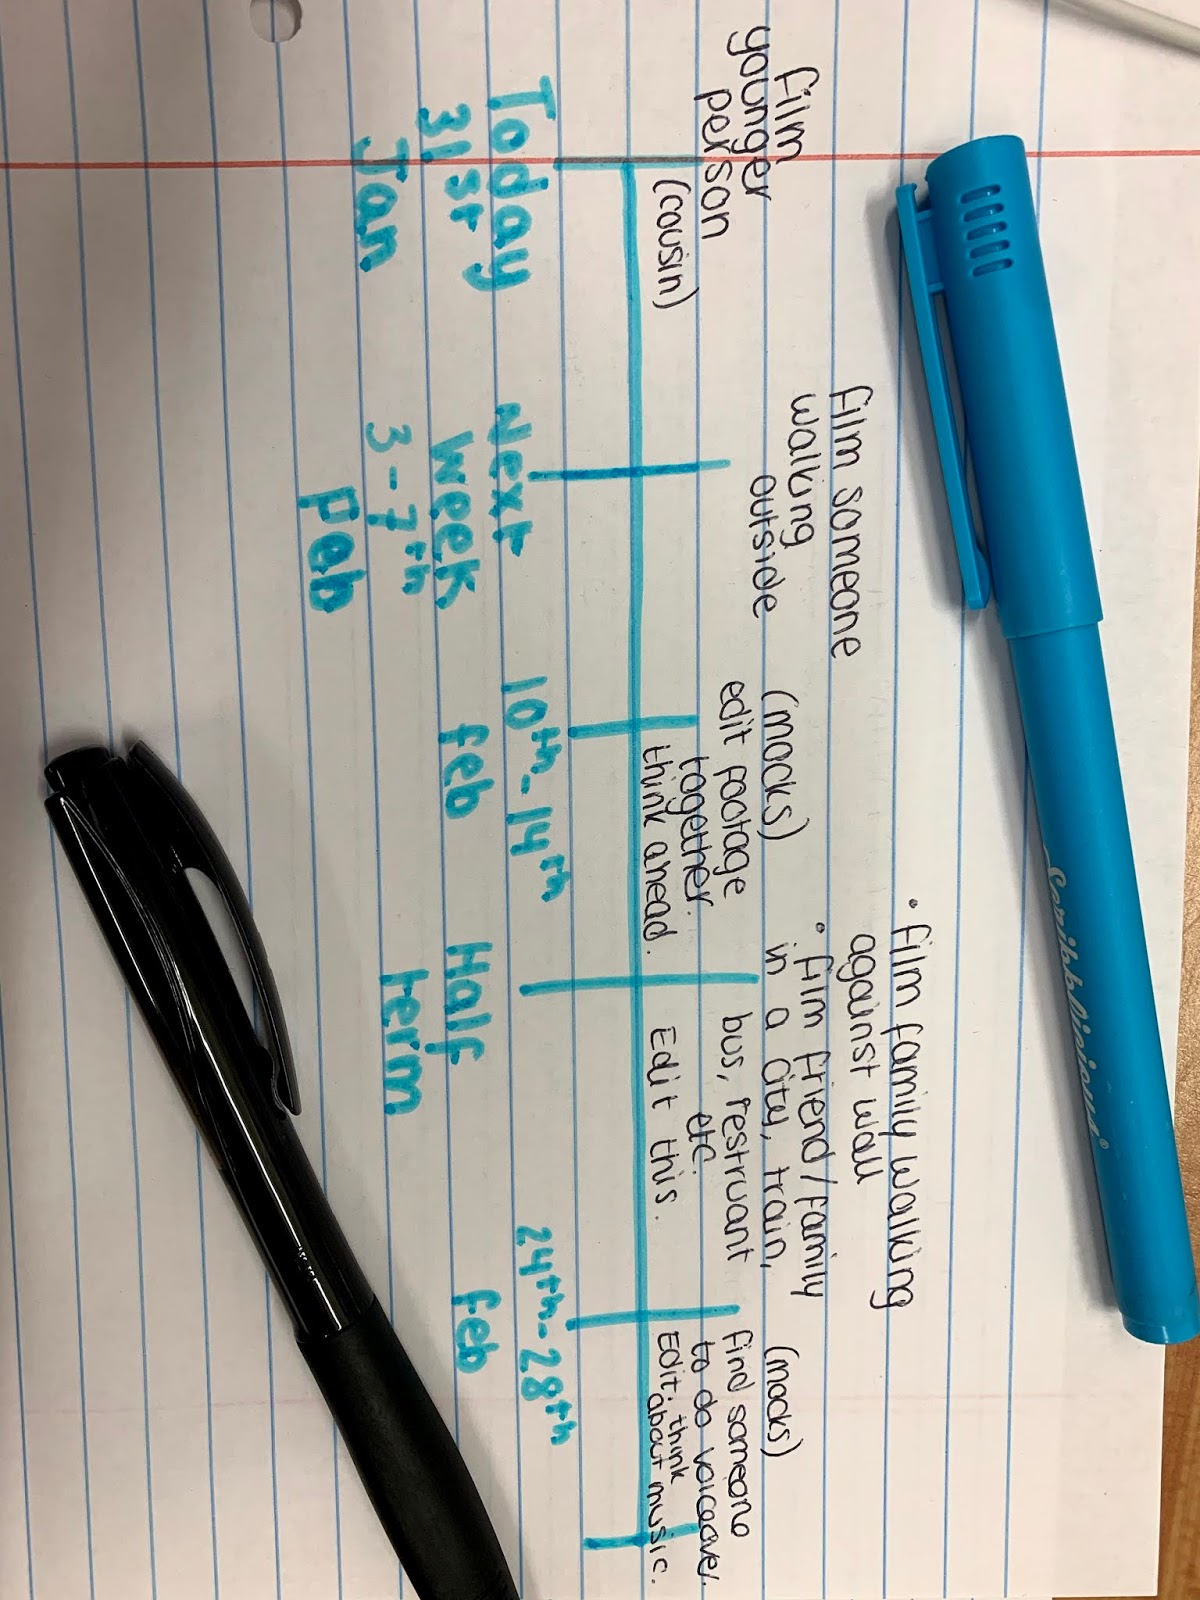 film
younger
person
(cousin)
Today
31st
Jan
film someone
walking
outside
Next
week
3-7th
Feb
(mocks)
edit footage
together.
think ahead.
10th-14th
feb
• film family walking
against wall
• film friend/family
in a city, train,
bus, restruant
etc.
Edit this.
Half
term
(mocks)
find someone
to do voiceover.
Edit. think
about music.
24th-28th
feb
Scribblicious®